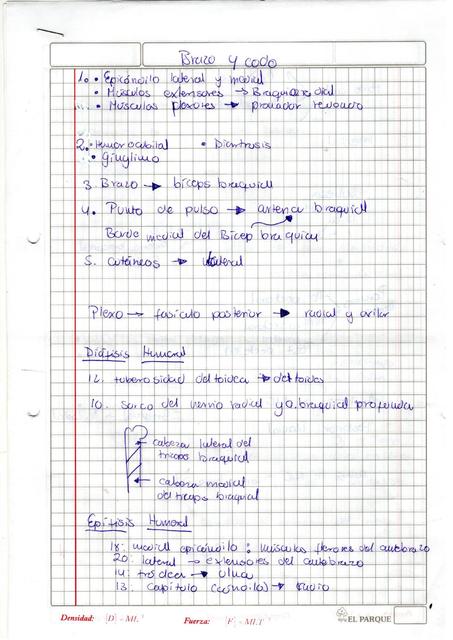 Brazo y codo
1. • Epicóndilo lateral y medial
• Músculos extensores → Braquioradial
• Músculos flexores → pronador redondo
2. • Humerocubital • Diartrosis
• Gínglimo
3. Brazo → bíceps braquial
4. Punto de pulso → arteria braquial
Borde medial del Bicep braquial
5. Cutáneos → lateral
Plexo → fasículo posterior → radial y axilar
Diáfisis Humeral
12. tuberosidad deltoidea → deltoides
10. surco del nervio radial y a. braquial profunda
cabeza lateral del
triceps braquial
cabeza medial
del triceps braquial
Epífisis Humeral
18: medial epicóndilo: músculos flexores del antebrazo
20: lateral → extensores del antebrazo
14: tróclea → ulna
13: Capítulo (cóndilo) → radio
Densidad: D - ML T Fuerza: F - MLT EL PARQUE